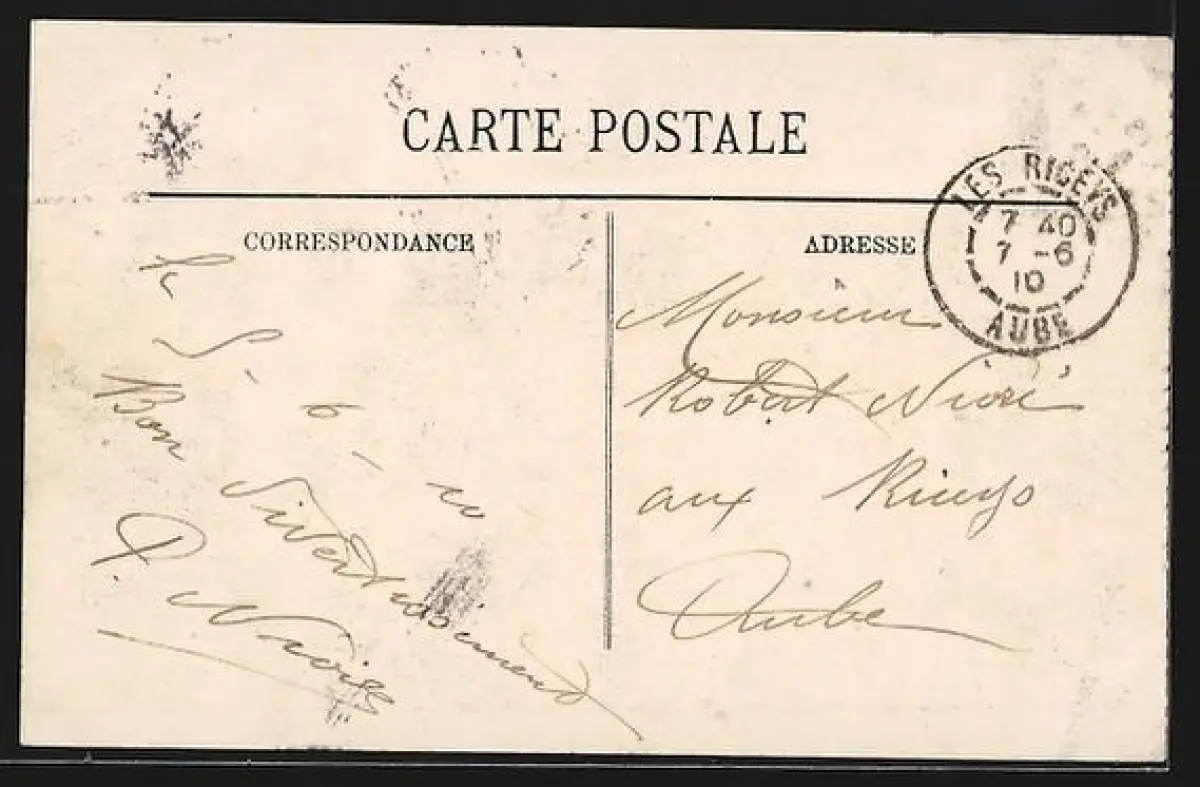 CARTE POSTALE
CORRESPONDANCE
Le 5 - 6 - 10
Bon Divertissement
P.
ADRESSE
Monsieur
Robert
aux Riceys
Aube
LES RICEYS
7 40
7 - 6
10
AUBE